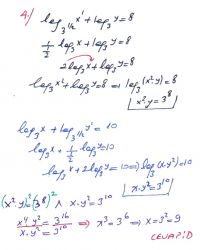 4) log_{3^{1/2}} x^1 + log_3 y = 8
1/½ log_3 x + log_3 y = 8
2 log_3 x + log_3 y = 8
log_3 x^2 + log_3 y = 8 ⇒ log_3 (x^2·y) = 8
x^2·y = 3^8
log_3 x + log_{3^{1/2}} y^1 = 10
log_3 x + 1/½ log_3 y = 10
log_3 x + 2 log_3 y = 10 ⇒ log_3 (x·y^2) = 10
x·y^2 = 3^10
(x^2·y)^2 = (3^8)^2 x·y^2 = 3^10
x^4 y^2 / x·y^2 = 3^16 / 3^10 ⇒ x^3 = 3^6 ⇒ x = 3^2 = 9
CEVAP: D